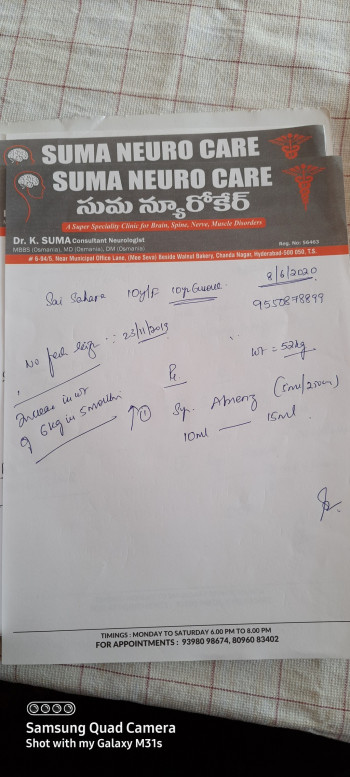 SUMA NEURO CARE
SUMA NEURO CARE
సుమ న్యూరోకేర్
A Super Speciality Clinic for Brain, Spine, Nerve, Muscle Disorders
Dr. K. SUMA Consultant Neurologist
MBBS (Osmania), MD (Osmania), DM (Osmania)
Reg. No: 56463
# 6-94/5, Near Municipal Office Lane, (Mee Seva) Beside Walnut Bakery, Chanda Nagar, Hyderabad-500 050, T.S.
8/6/2020
Sai Sahara 10y/F
9550878899
No :: 23/11/2019
Wt = 52kg
Increase in wt
of 6kg in 5 months
↑ ① Syp. (5ml/250mg)
10ml — 15ml
TIMINGS : MONDAY TO SATURDAY 6.00 PM TO 8.00 PM
FOR APPOINTMENTS : 93980 98674, 80960 83402
Samsung Quad Camera
Shot with my Galaxy M31s